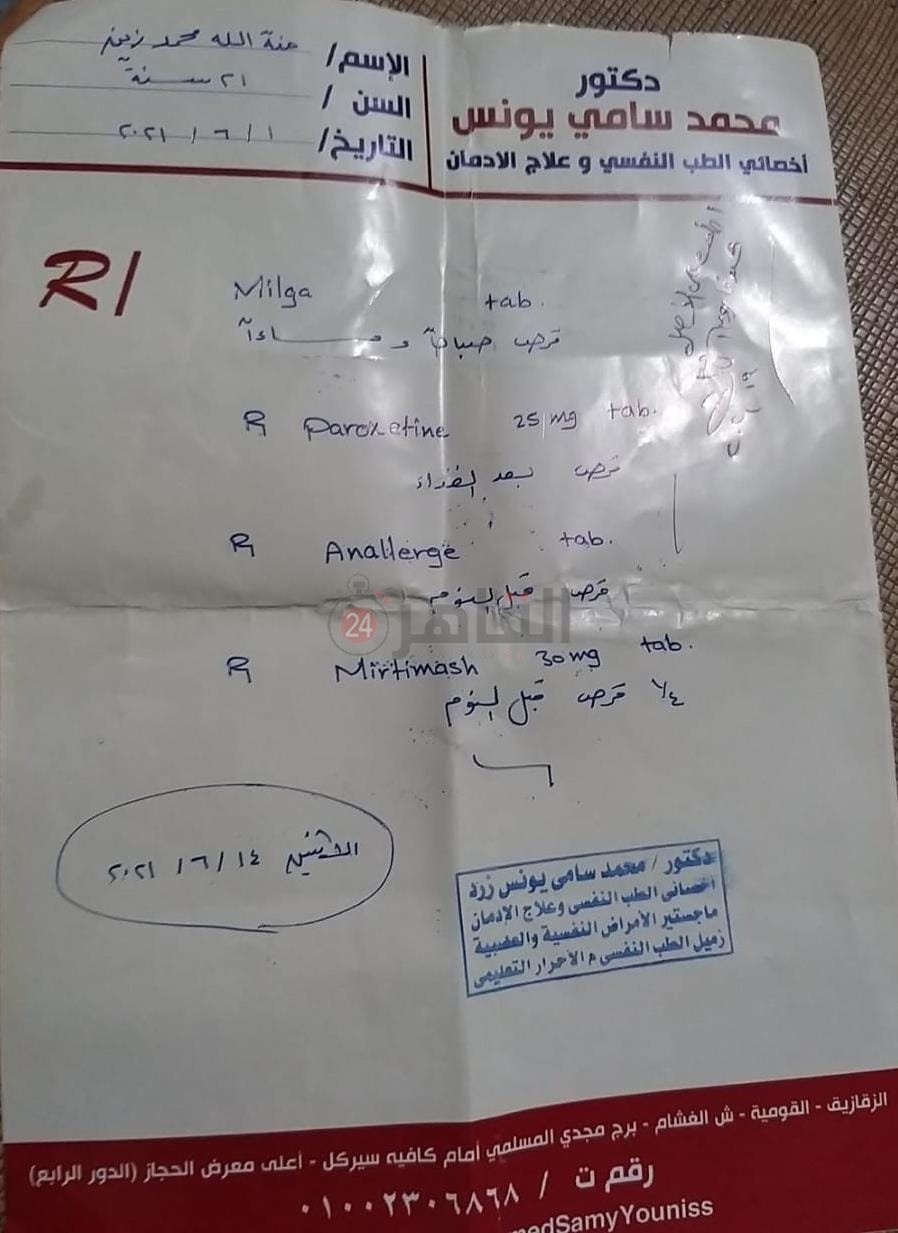 دكتور
محمد سامي يونس
أخصائي الطب النفسي و علاج الادمان
الإسم/ منة الله محمد زين
السن / ٢١ سنة
التاريخ/ ١ / ٦ / ٢٠٢١
R/
Milga tab.
قرص صباحاً و مساءاً
R Paroxetine 25 mg tab.
قرص بعد الغداء
R Anallerge tab.
قرص قبل النوم
القاهرة 24
R Mirtimash 30 mg tab.
١/٤ قرص قبل النوم
الاثنين ١٤ / ٦ / ٢٠٢١
دكتور / محمد سامى يونس زرد
اخصائى الطب النفسى وعلاج الإدمان
ماجستير الأمراض النفسية والعصبية
زميل الطب النفسى م الأحرار التعليمى
الزقازيق - القومية - ش الغشام - برج مجدي المسلمي أمام كافيه سيركل - أعلى معرض الحجاز (الدور الرابع)
رقم ت / ٠١٠٠٢٣٠٦٨٦٨
edSamyYouniss